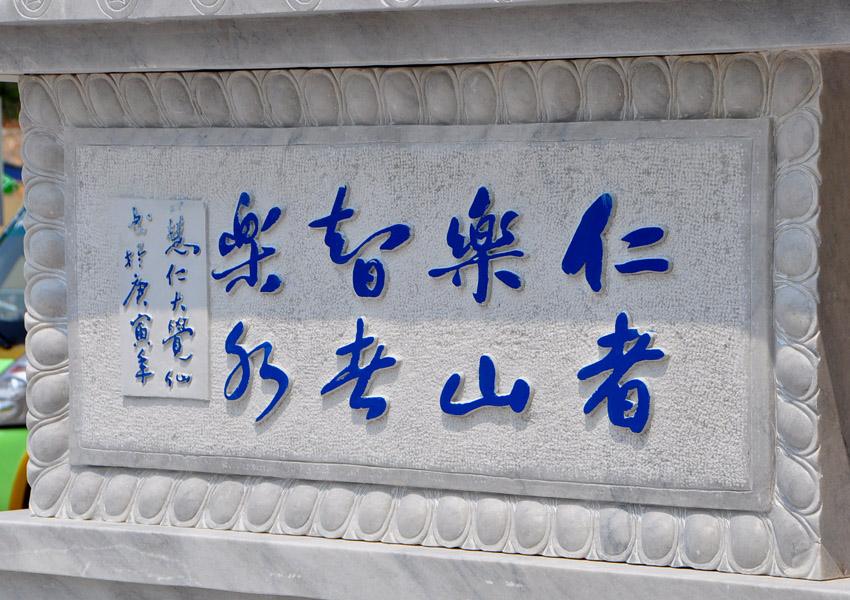 仁者
樂山
智者
樂水
慧仁大覺仙
書於庚寅年